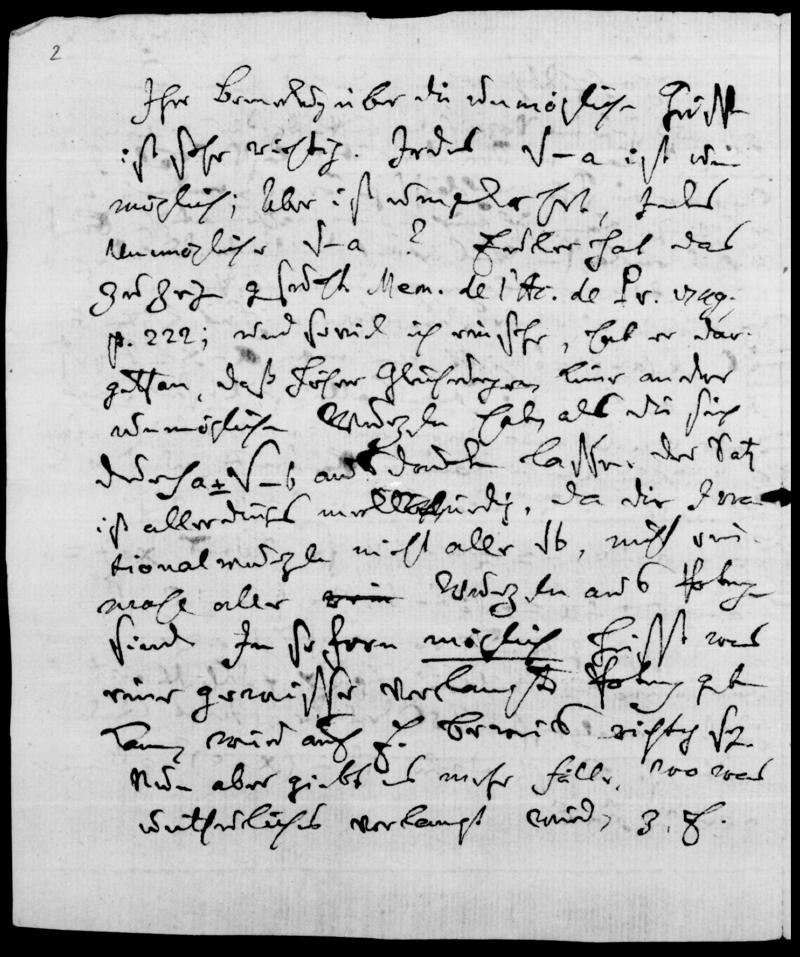 2
Ihre Bemerkung über die unmögliche Größe
ist sehr richtig. Jedes √−a ist un
möglich; Aber ist umgekehrt, jedes
Unmögliche √−a ? Euler hat das
zu gesucht Mem. de l'Ac. de Pr. 1749.
p. 222; und soviel ich einsehe, hat er dar-
gethan, daß höhere Gleichungen keine andere
unmögliche Wurzeln haben als die sich
durch a ± √−b ausdrucken lassen. Der Satz
ist allerdings merkwürdig, da die Irra-
tionalwurzeln nicht alle √b, nicht ein
mahl alle Wurzeln aus
sind. In so fern möglich heißt was
eine gewisse verlangte geben
kann, wird auch E. Beweis richtig
Nun aber giebt es mehr Fälle, wo was
verlangt wird, z. E.